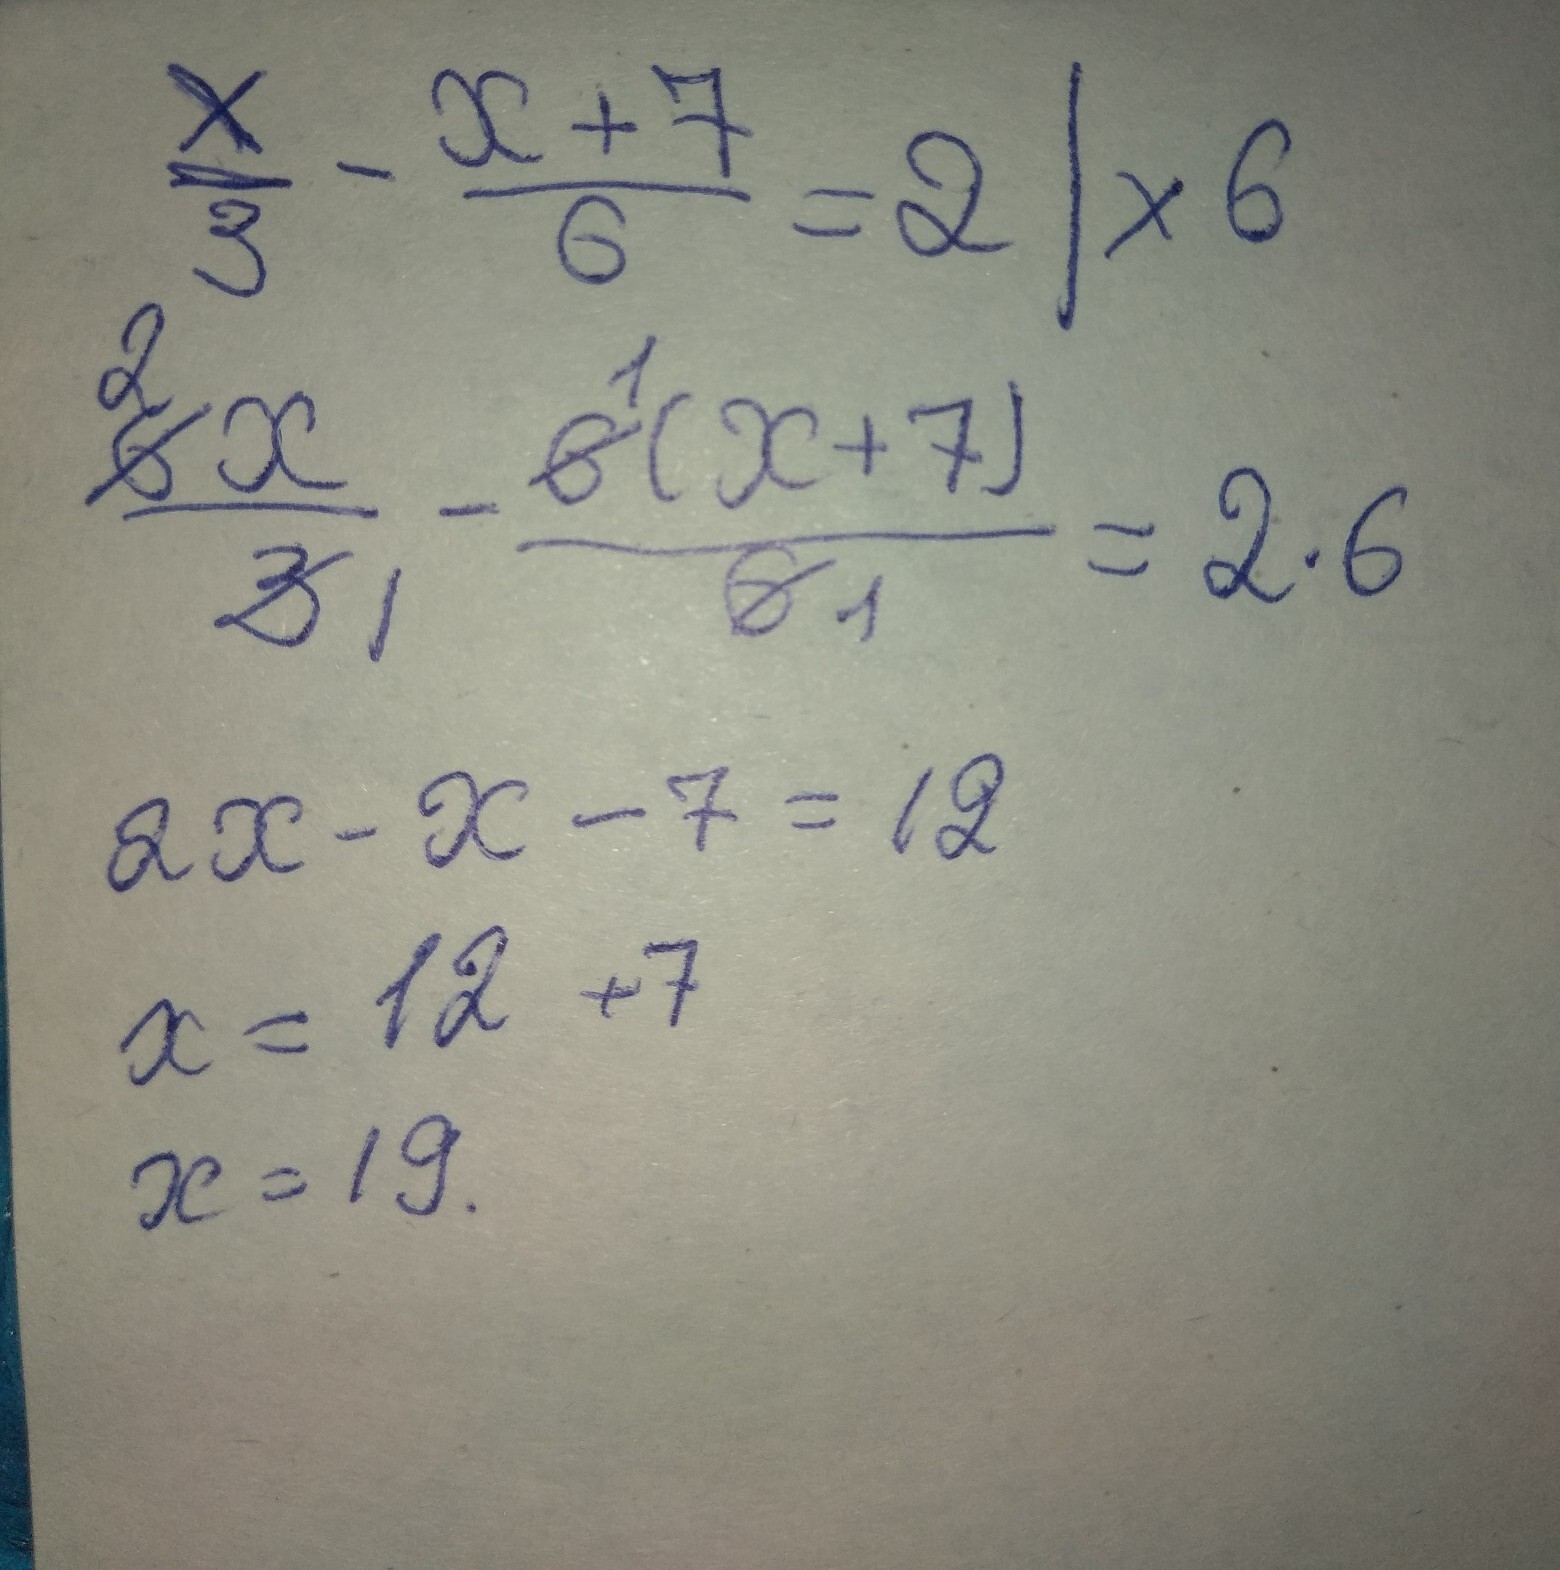 x/3 - x+7/6 = 2 | × 6
2 6x/3 1 - 6 1(x+7)/6 1 = 2·6
2x - x - 7 = 12
x = 12 +7
x = 19.